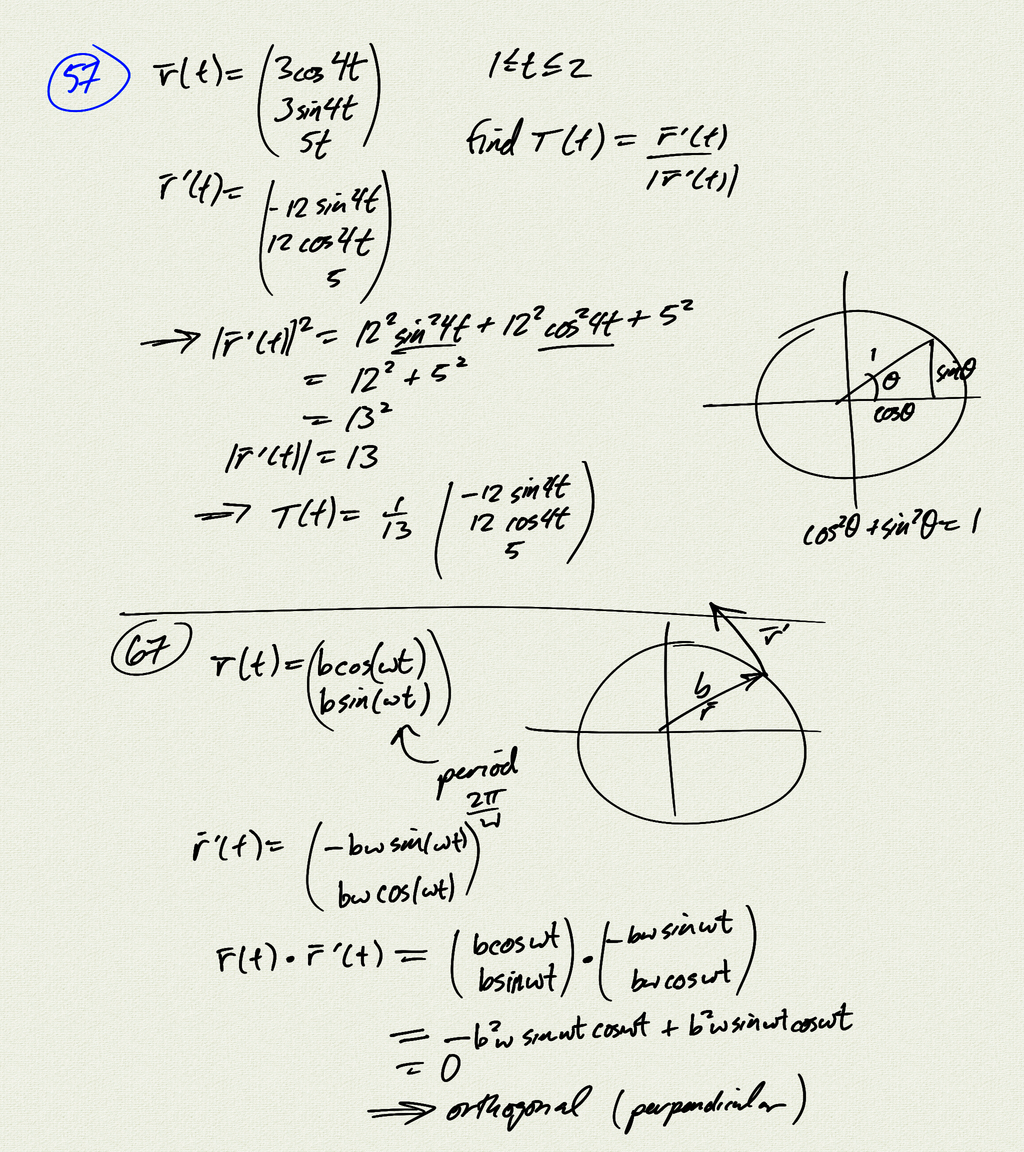 57 r̄(t) = (3cos4t 1≤t≤2
3sin4t
5t) find T(t) = r̄'(t)
|r̄'(t)|
r̄'(t) = (-12 sin4t
12 cos4t
5)
⇒ |r̄'(t)|² = 12² sin²4t + 12² cos²4t + 5²
= 12² + 5²
= 13²
|r̄'(t)| = 13
⇒ T(t) = 1/13 (-12 sin4t
12 cos4t
5)
1
θ
sinθ
cosθ
cos²θ + sin²θ = 1
67 r̄(t) = (bcos(ωt)
bsin(ωt))
period
2π/ω
r̄'
b
r̄
r̄'(t) = (-bω sin(ωt)
bω cos(ωt))
r̄(t) • r̄'(t) = (bcosωt
bsinωt) • (-bω sinωt
bω cosωt)
= -b²ω sinωt cosωt + b²ω sinωt cosωt
= 0
⇒ orthogonal (perpendicular)